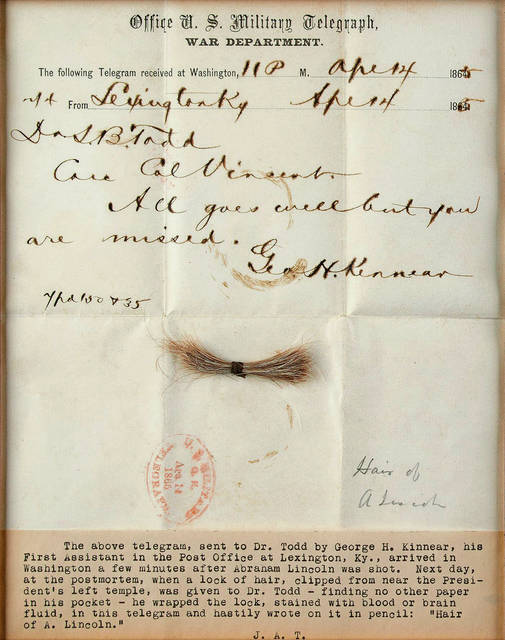 Office U. S. Military Telegraph,
WAR DEPARTMENT.
The following Telegram received at Washington, 11 P M. Apl 14 1865
From Lexington Ky Apl 14 1865
Dr L B Todd
Care Col Vincent.
All goes well but you
are missed.
Geo. H. Kennear
35
U.S. MILITARY
Apr 14
1865
TELEGRAPH
Hair of
A Lincoln
The above telegram, sent to Dr. Todd by George H. Kinnear, his
First Assistant in the Post Office at Lexington, Ky., arrived in
Washington a few minutes after Abraham Lincoln was shot. Next day,
at the postmortem, when a lock of hair, clipped from near the Presi-
dent's left temple, was given to Dr. Todd - finding no other paper
in his pocket - he wrapped the lock, stained with blood or brain
fluid, in this telegram and hastily wrote on it in pencil: "Hair
of A. Lincoln."
J. A. T.